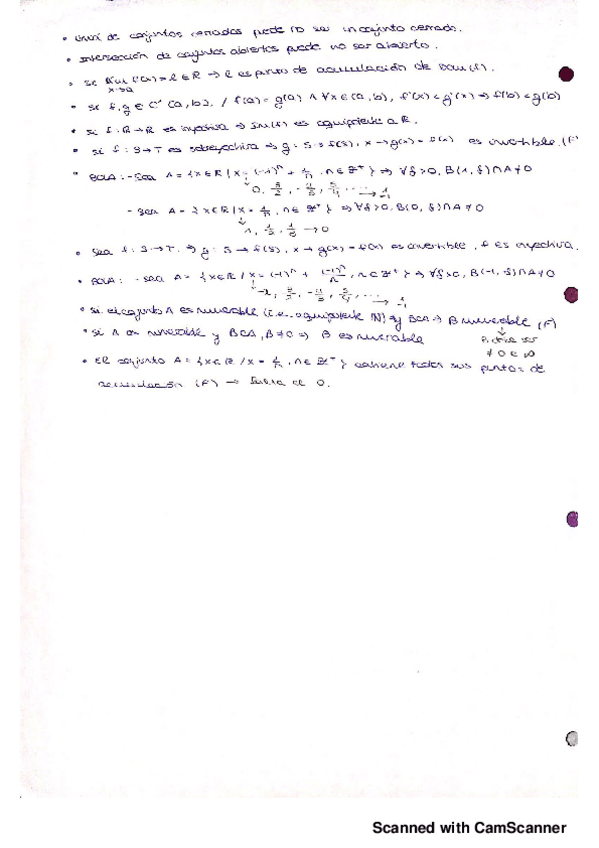 • Unión de conjuntos cerrados puede no ser un conjunto cerrado.
• Intersección de conjuntos abiertos puede no ser abierto.
• Si lim x→a f(x) = l ∈ R → l es punto de acumulación de Dom(f).
• Si f, g ∈ C' (a, b), / f(a) = g(a) ∧ ∀x ∈ (a, b), f'(x) < g'(x) ⇒ f(b) < g(b)
• Si f: R → R es inyectiva ⇒ Im(f) es equipotente a R.
• Si f: S → T es sobreyectiva ⇒ g: S → f(S), x → g(x) = f(x) es invertible. (F)
• BOLA: - Sea A = {x ∈ R / x = (-1)^n + 1/n, n ∈ Z+} ⇒ ∀δ > 0, B(1, δ) ∩ A ≠ 0
0, 3/2, -2/3, 5/4, ... → 1
- Sea A = {x ∈ R / x = 1/n, n ∈ Z+} ⇒ ∀δ > 0, B(0, δ) ∩ A ≠ 0
1, 1/2, 1/3 → 0
• Sea f: S → T. ⇒ g: S → f(S), x → g(x) = f(x) es invertible, f es inyectiva.
• BOLA: - Sea A = {x ∈ R / x = (-1)^n + (-1)^n/n, n ∈ Z+} ⇒ ∀δ > 0, B(-1, δ) ∩ A ≠ 0
-2, 3/2, 5/4, ...
• Si el conjunto A es numerable (i.e. equipotente N) y B⊂A ⇒ B numerable (F)
• Si A es numerable y B⊂A, B ≠ 0 ⇒ B es numerable
ser
≠ 0 e ∞
• El conjunto A = {x ∈ R / x = 1/n, n ∈ Z+} contiene todos sus puntos de
acumulación (F) → fuera el 0.
Scanned with CamScanner